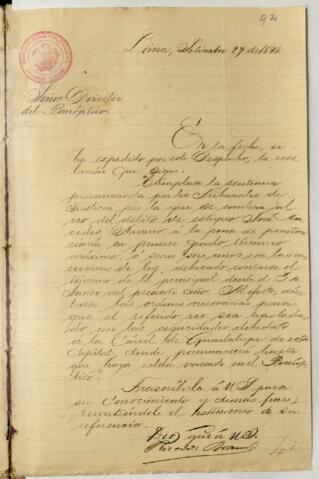 92
Lima, Setiembre 27 de 189
Señor Director
del Panóptico
En la fecha, se
ha expedido por este Despacho, la reso
lucion que sigue:
"Cúmplase la sentencia
pronunciada por los Tribunales de
Justicia por la que se condena al
reo del delito de estupro José
cedes Alvaro á la pena de peniten
ciaria en primer grado, término
máximo, ó sean seis años con las ac
cesorias de ley, debiendo contarse el
término de la principal desde el 3 de
Junio del presente año. Al efecto, díc
tense las órdenes necesarias para
que el referido reo sea traslada
do con las seguridades debidas
á la Cárcel de Guadalupe de esta
Capital, donde permanecerá hasta
que haya celda vacante en el Panóp
tico".
Trascríbola á US. para
su conocimiento y demás fines,
remitiéndole el testimonio de su
referencia.
Dios gue á US.
Ricardo